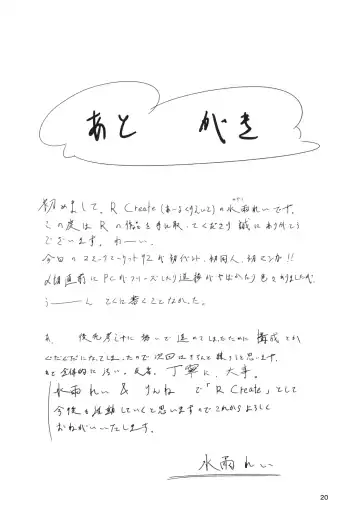 あとがき
初めまして。R Create(あーるくりえいと)の水雨れいです。
この度は R の作品を手に取ってくださり誠にありがとう
ございます。わーい。
今回のコミックマーケット92が初イベント、初同人、初マンガ!!
直前にPCがフリーズしたり色々ありましたが、
うーーーん てくに書くことなかった。
あ、後先考えずに描いて進めてしまったために構成とか
ぐだぐだになってしまったので次回はきちんと練ろうと思います。
あと全体的に汚い。反省。丁寧に、大事。
水雨れい & りんね で「R Create」として
今後も活動していくと思いますのでこれからよろしく
おねがいいたします。
水雨れい
20